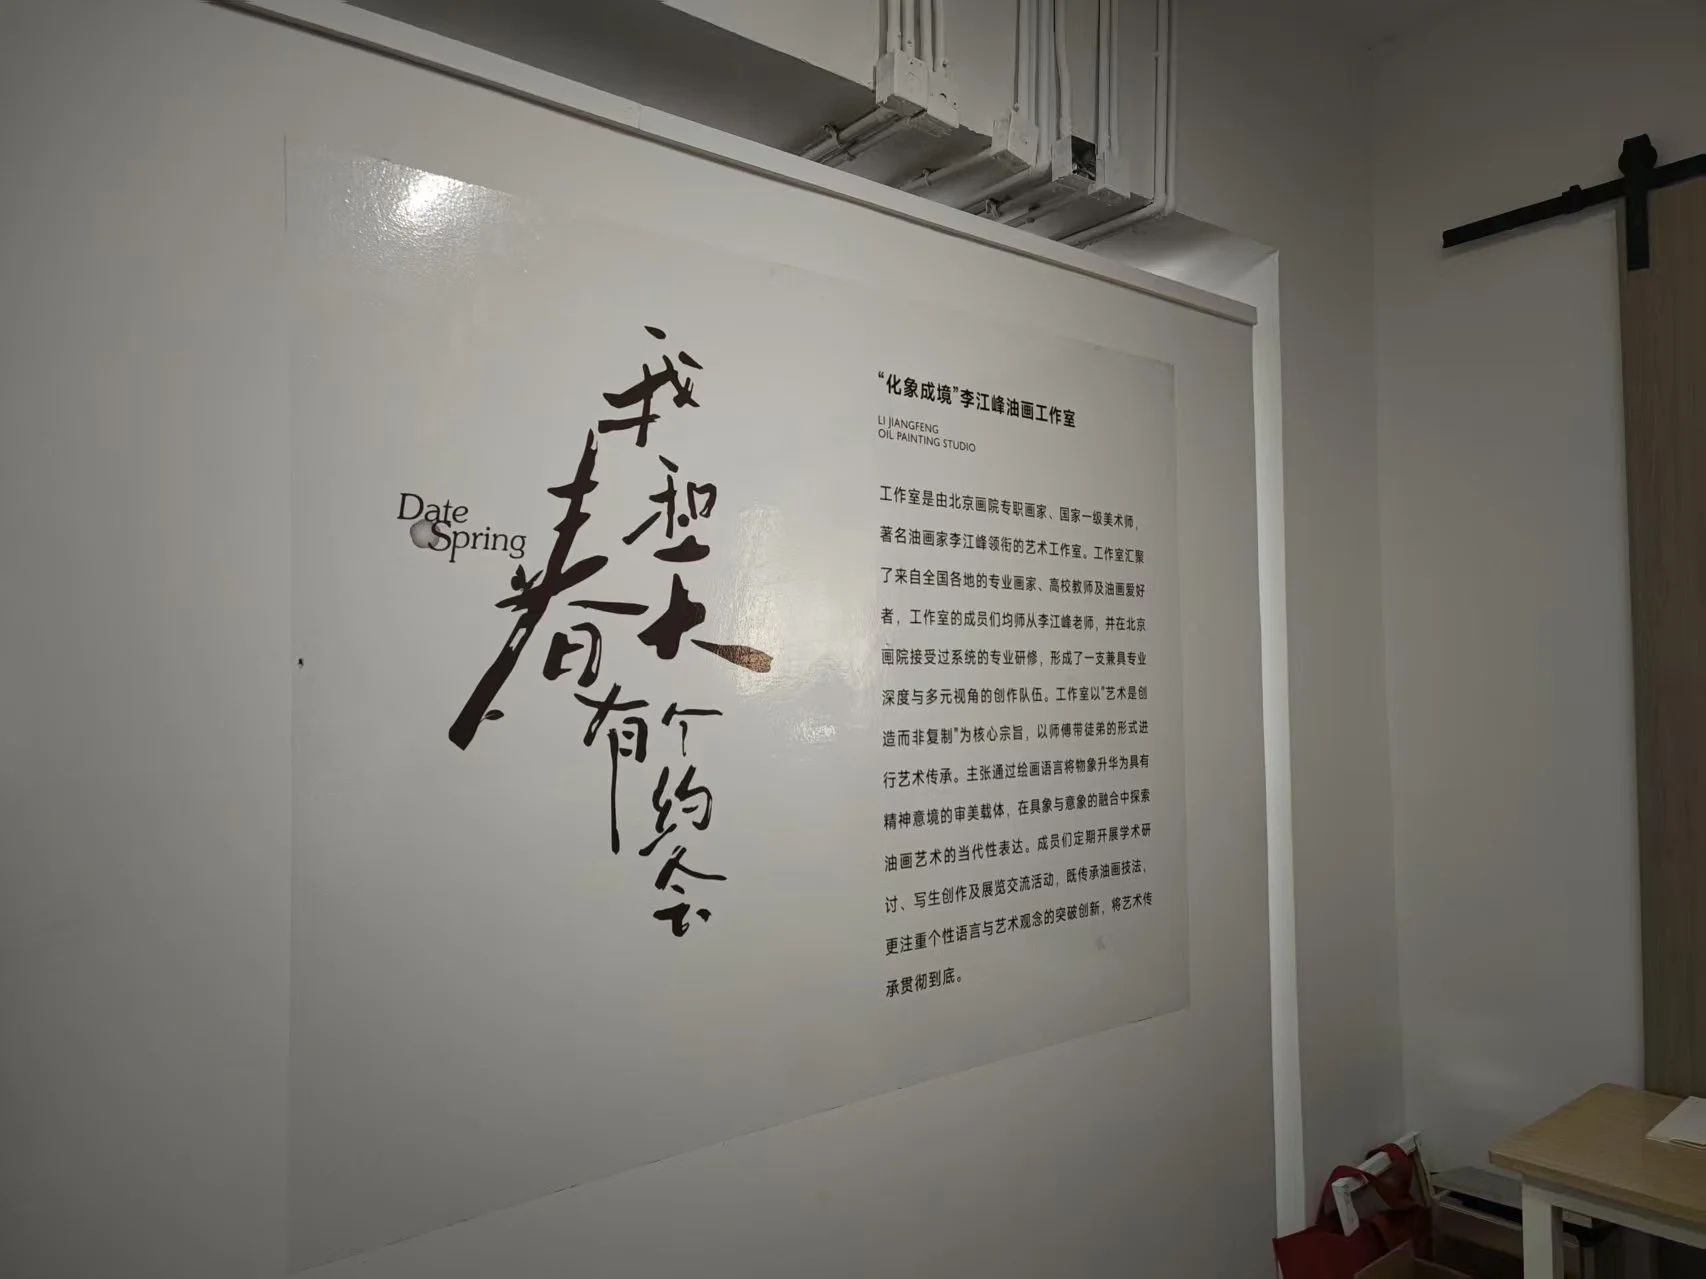 我和大
春有个约会
Date
Spring
“化象成境”李江峰油画工作室
LI JIANGFENG
OIL PAINTING STUDIO
工作室是由北京画院专职画家、国家一级美术师，
著名油画家李江峰领衔的艺术工作室。工作室汇聚
了来自全国各地的专业画家、高校教师及油画爱好
者，工作室的成员们均师从李江峰老师，并在北京
画院接受过系统的专业研修，形成了一支兼具专业
深度与多元视角的创作队伍。工作室以"艺术是创
造而非复制"为核心宗旨，以师傅带徒弟的形式进
行艺术传承。主张通过绘画语言将物象升华为具有
精神意境的审美载体，在具象与意象的融合中探索
油画艺术的当代性表达。成员们定期开展学术研
讨、写生创作及展览交流活动，既传承油画技法，
更注重个性语言与艺术观念的突破创新，将艺术传
承贯彻到底。